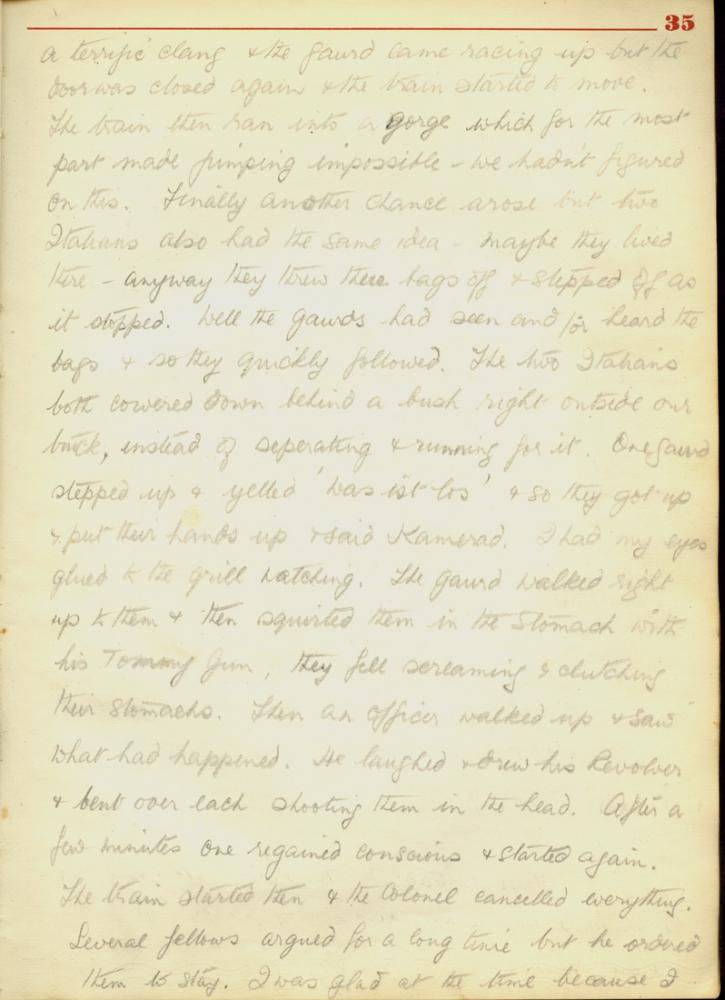 35
a terrific clang & the gaurd came racing up but the
door was closed again & the train started to move.
The train then ran into a gorge which for the most
part made jumping impossible - we hadn't figured
on this. Finally another chance arose but two
Italians also had the same idea - maybe they lived
there - anyway they threw there bags off & stepped off as
it stopped. Well the gaurds had seen and/or heard the
bags & so they quickly followed. The two Italians
both cowered down behind a bush right outside our
truck, instead of seperating & running for it. One gaurd
stepped up & yelled 'was ist los' & so they got up
& put their hands up & said Kamerad. I had my eyes
glued to the grill watching. The gaurd walked right
up to them & then squirted them in the Stomach with
his Tommy Gun, they fell screaming & clutching
their stomachs. Then an officer walked up & saw
what had happened. He laughed & drew his Revolver
& bent over each shooting them in the head. After a
few minutes one regained conscious & started again.
The train started then & the Colonel cancelled everything.
Several fellows argued for a long time but he ordered
them to stay. I was glad at the time because I